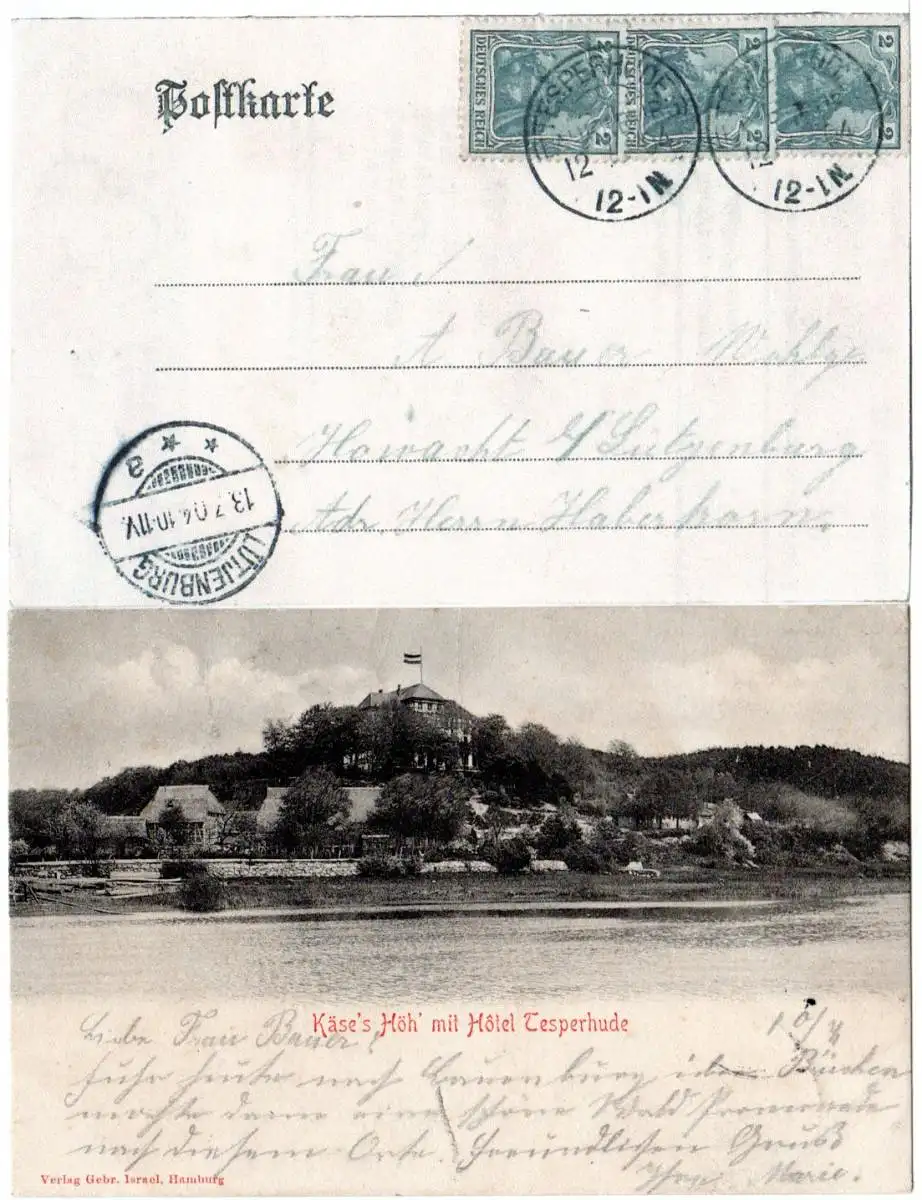 Postkarte
DEUTSCHES REICH 2 2
DEUTSCHES REICH 2
DEUTSCHES REICH 2 2
TESPERHUDE
12-1N.
12-1N.
Frau
A Bauer
Howacht b/ Lütgenburg
Adr Herrn Haberkorn
LÜTJENBURG
13.7.04.10-11V.
Käse's Höh' mit Hôtel Tesperhude
Liebe Frau Bauer!
fuhr heute nach Lauenburg Büchen
machte dann eine schöne Wald Promenade
nach diesem Orte. Freundlichen Gruß
Marie.
Verlag Gebr. Israel, Hamburg